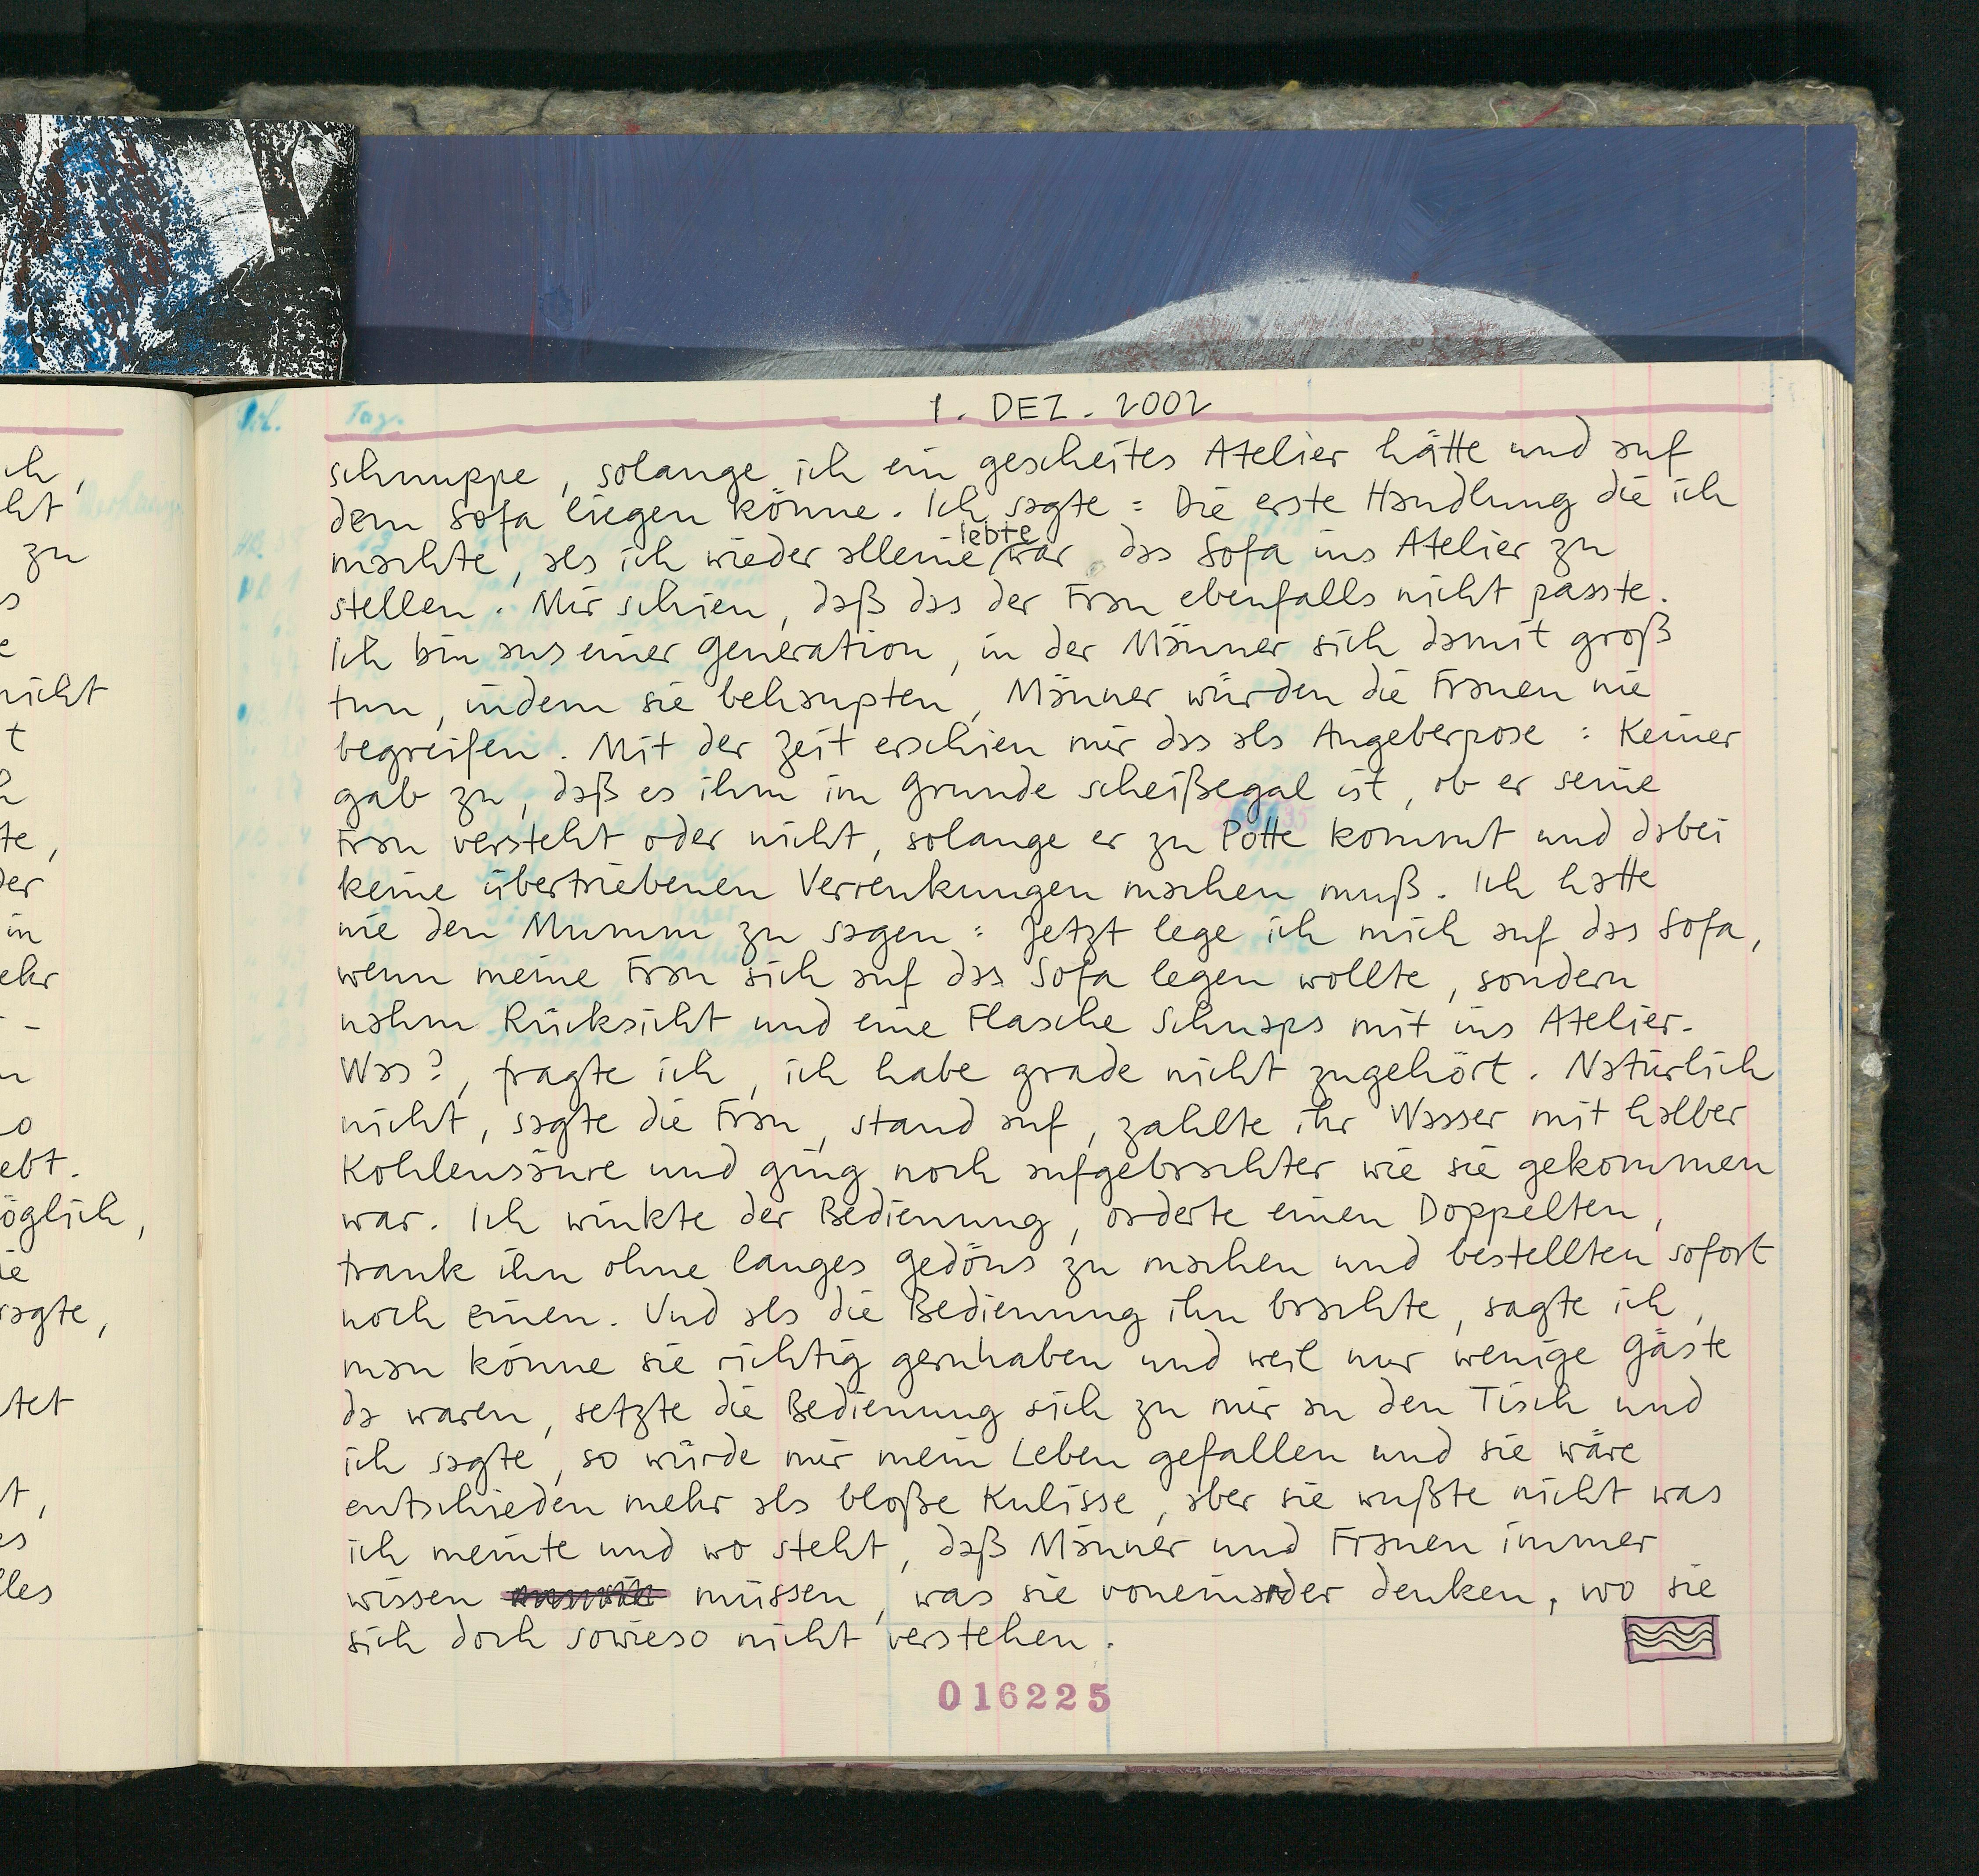 1. DEZ. 2002
schnuppe, solange ich ein gescheites Atelier hätte und auf
dem Sofa liegen könne. Ich sagte: Die erste Handlung die ich
lebte
machte, als ich wieder alleine war das Sofa ins Atelier zu
stellen. Mir schien, daß das der Frau ebenfalls nicht passte.
Ich bin aus einer Generation, in der Männer sich damit groß
tun, indem sie behaupten, Männer würden die Frauen nie
begreifen. Mit der Zeit erschien mir das als Angeberpose: Keiner
gab zu, daß es ihm im Grunde scheißegal ist, ob er seine
Frau versteht oder nicht, solange er zu Potte kommt und dabei
keine übertriebenen Verrenkungen machen muß. Ich hatte
nie den Mumm zu sagen: Jetzt lege ich mich auf das Sofa,
wenn meine Frau sich auf das Sofa legen wollte, sondern
nahm Rücksicht und eine Flasche Schnaps mit ins Atelier.
Was?, fragte ich, ich habe grade nicht zugehört. Natürlich
nicht, sagte die Frau, stand auf, zahlte ihr Wasser mit halber
Kohlensäure und ging noch aufgebrachter wie sie gekommen
war. Ich winkte der Bedienung, orderte einen Doppelten,
trank ihn ohne langes Gedöns zu machen und bestellten sofort
noch einen. Und als die Bedienung ihn brachte, sagte ich,
man könne sie richtig gernhaben und weil nur wenige Gäste
da waren, setzte die Bedienung sich zu mir an den Tisch und
ich sagte, so würde mir mein Leben gefallen und sie wäre
entschieden mehr als bloße Kulisse, aber sie wußte nicht was
ich meinte und wo steht, daß Männer und Frauen immer
wissen müssen, was sie voneinander denken, wo sie
sich doch sowieso nicht verstehen.
016225